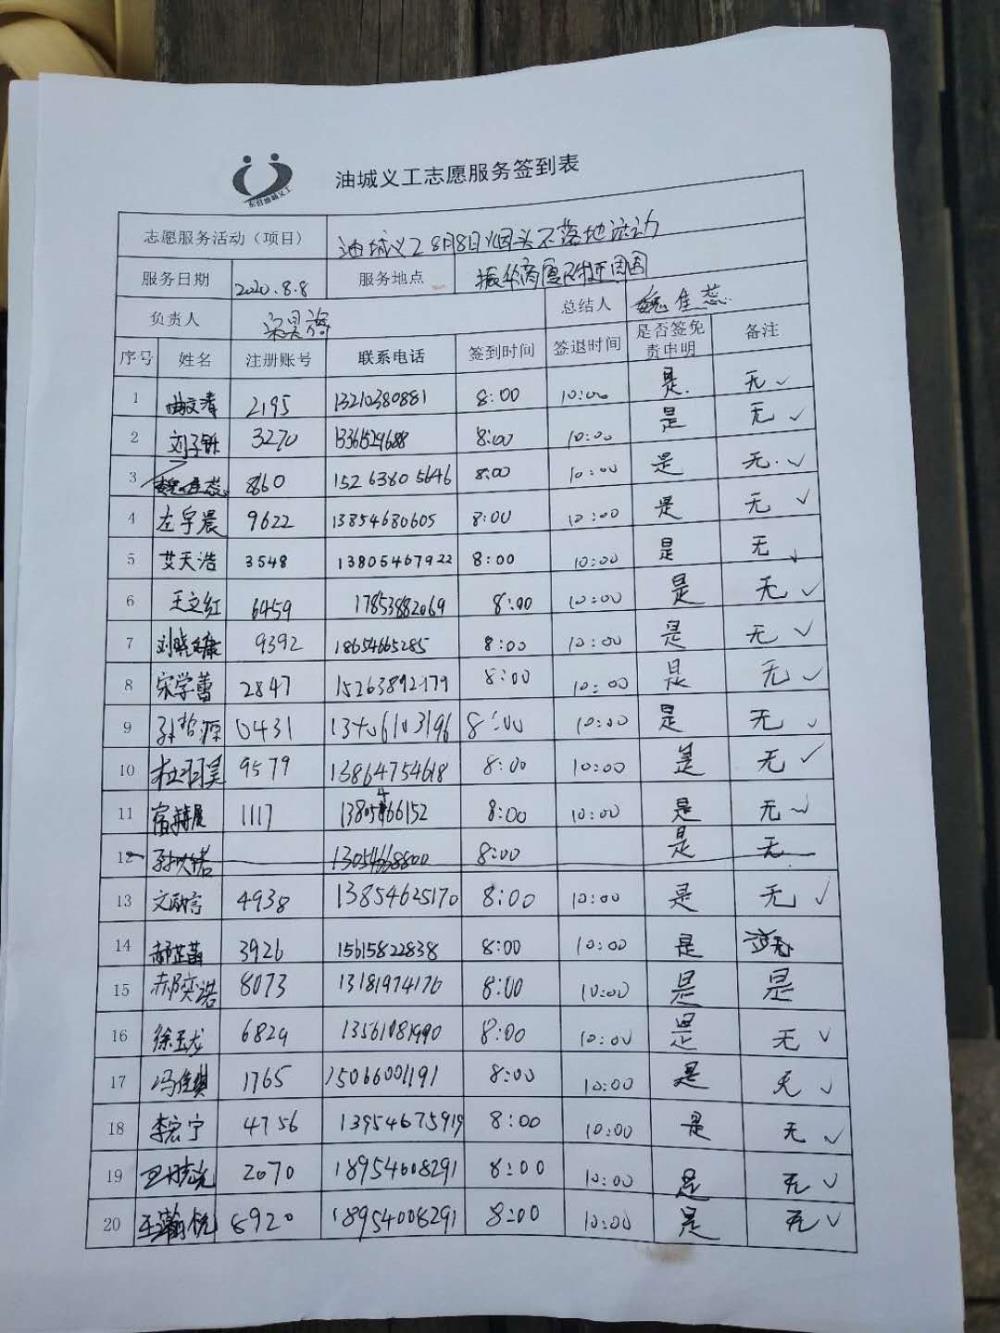 东营油城义工
油城义工志愿服务签到表
志愿服务活动（项目） 油城义工8月8日烟头不落地活动
服务日期 2020.8.8 服务地点 振华商厦及附近周围
负责人 总结人 魏佳蕊
序号 姓名 注册账号 联系电话 签到时间 签退时间 是否签免责申明 备注
1 曲文涛 2195 13210380881 8:00 10:00 是 无 ✓
2 3270 13361529688 8:00 10:00 是 无 ✓
3 魏佳蕊 860 15263805646 8:00 10:00 是 无 ✓
4 左宇晨 9622 13854680605 8:00 10:00 是 无 ✓
5 艾天浩 3548 13805467922 8:00 10:00 是 无 ✓
6 王文红 6459 17853882069 8:00 10:00 是 无 ✓
7 刘晓康 9392 18654665285 8:00 10:00 是 无 ✓
8 宋学蕾 2847 15263892179 8:00 10:00 是 无 ✓
9 孙哲源 0431 13406103196 8:00 10:00 是 无 ✓
10 杜羽昊 9579 13864754618 8:00 10:00 是 无 ✓
11 1117 13805466152 8:00 10:00 是 无 ✓
12 13054668800 8:00 是 无
13 4938 13854625170 8:00 10:00 是 无 ✓
14 郝芷菡 3926 15615822838 8:00 10:00 是
15 郝奕浩 8073 13181974176 8:00 10:00 是 是
16 徐玉龙 6829 13561081990 8:00 10:00 是 无 ✓
17 冯佳琪 1765 15066001191 8:00 10:00 是 无 ✓
18 李宏宁 4756 13954675919 8:00 10:00 是 无 ✓
19 2070 18954008291 8:00 10:00 是 无 ✓
20 王瀚悦 8920 18954008291 8:00 10:00 是 无 ✓